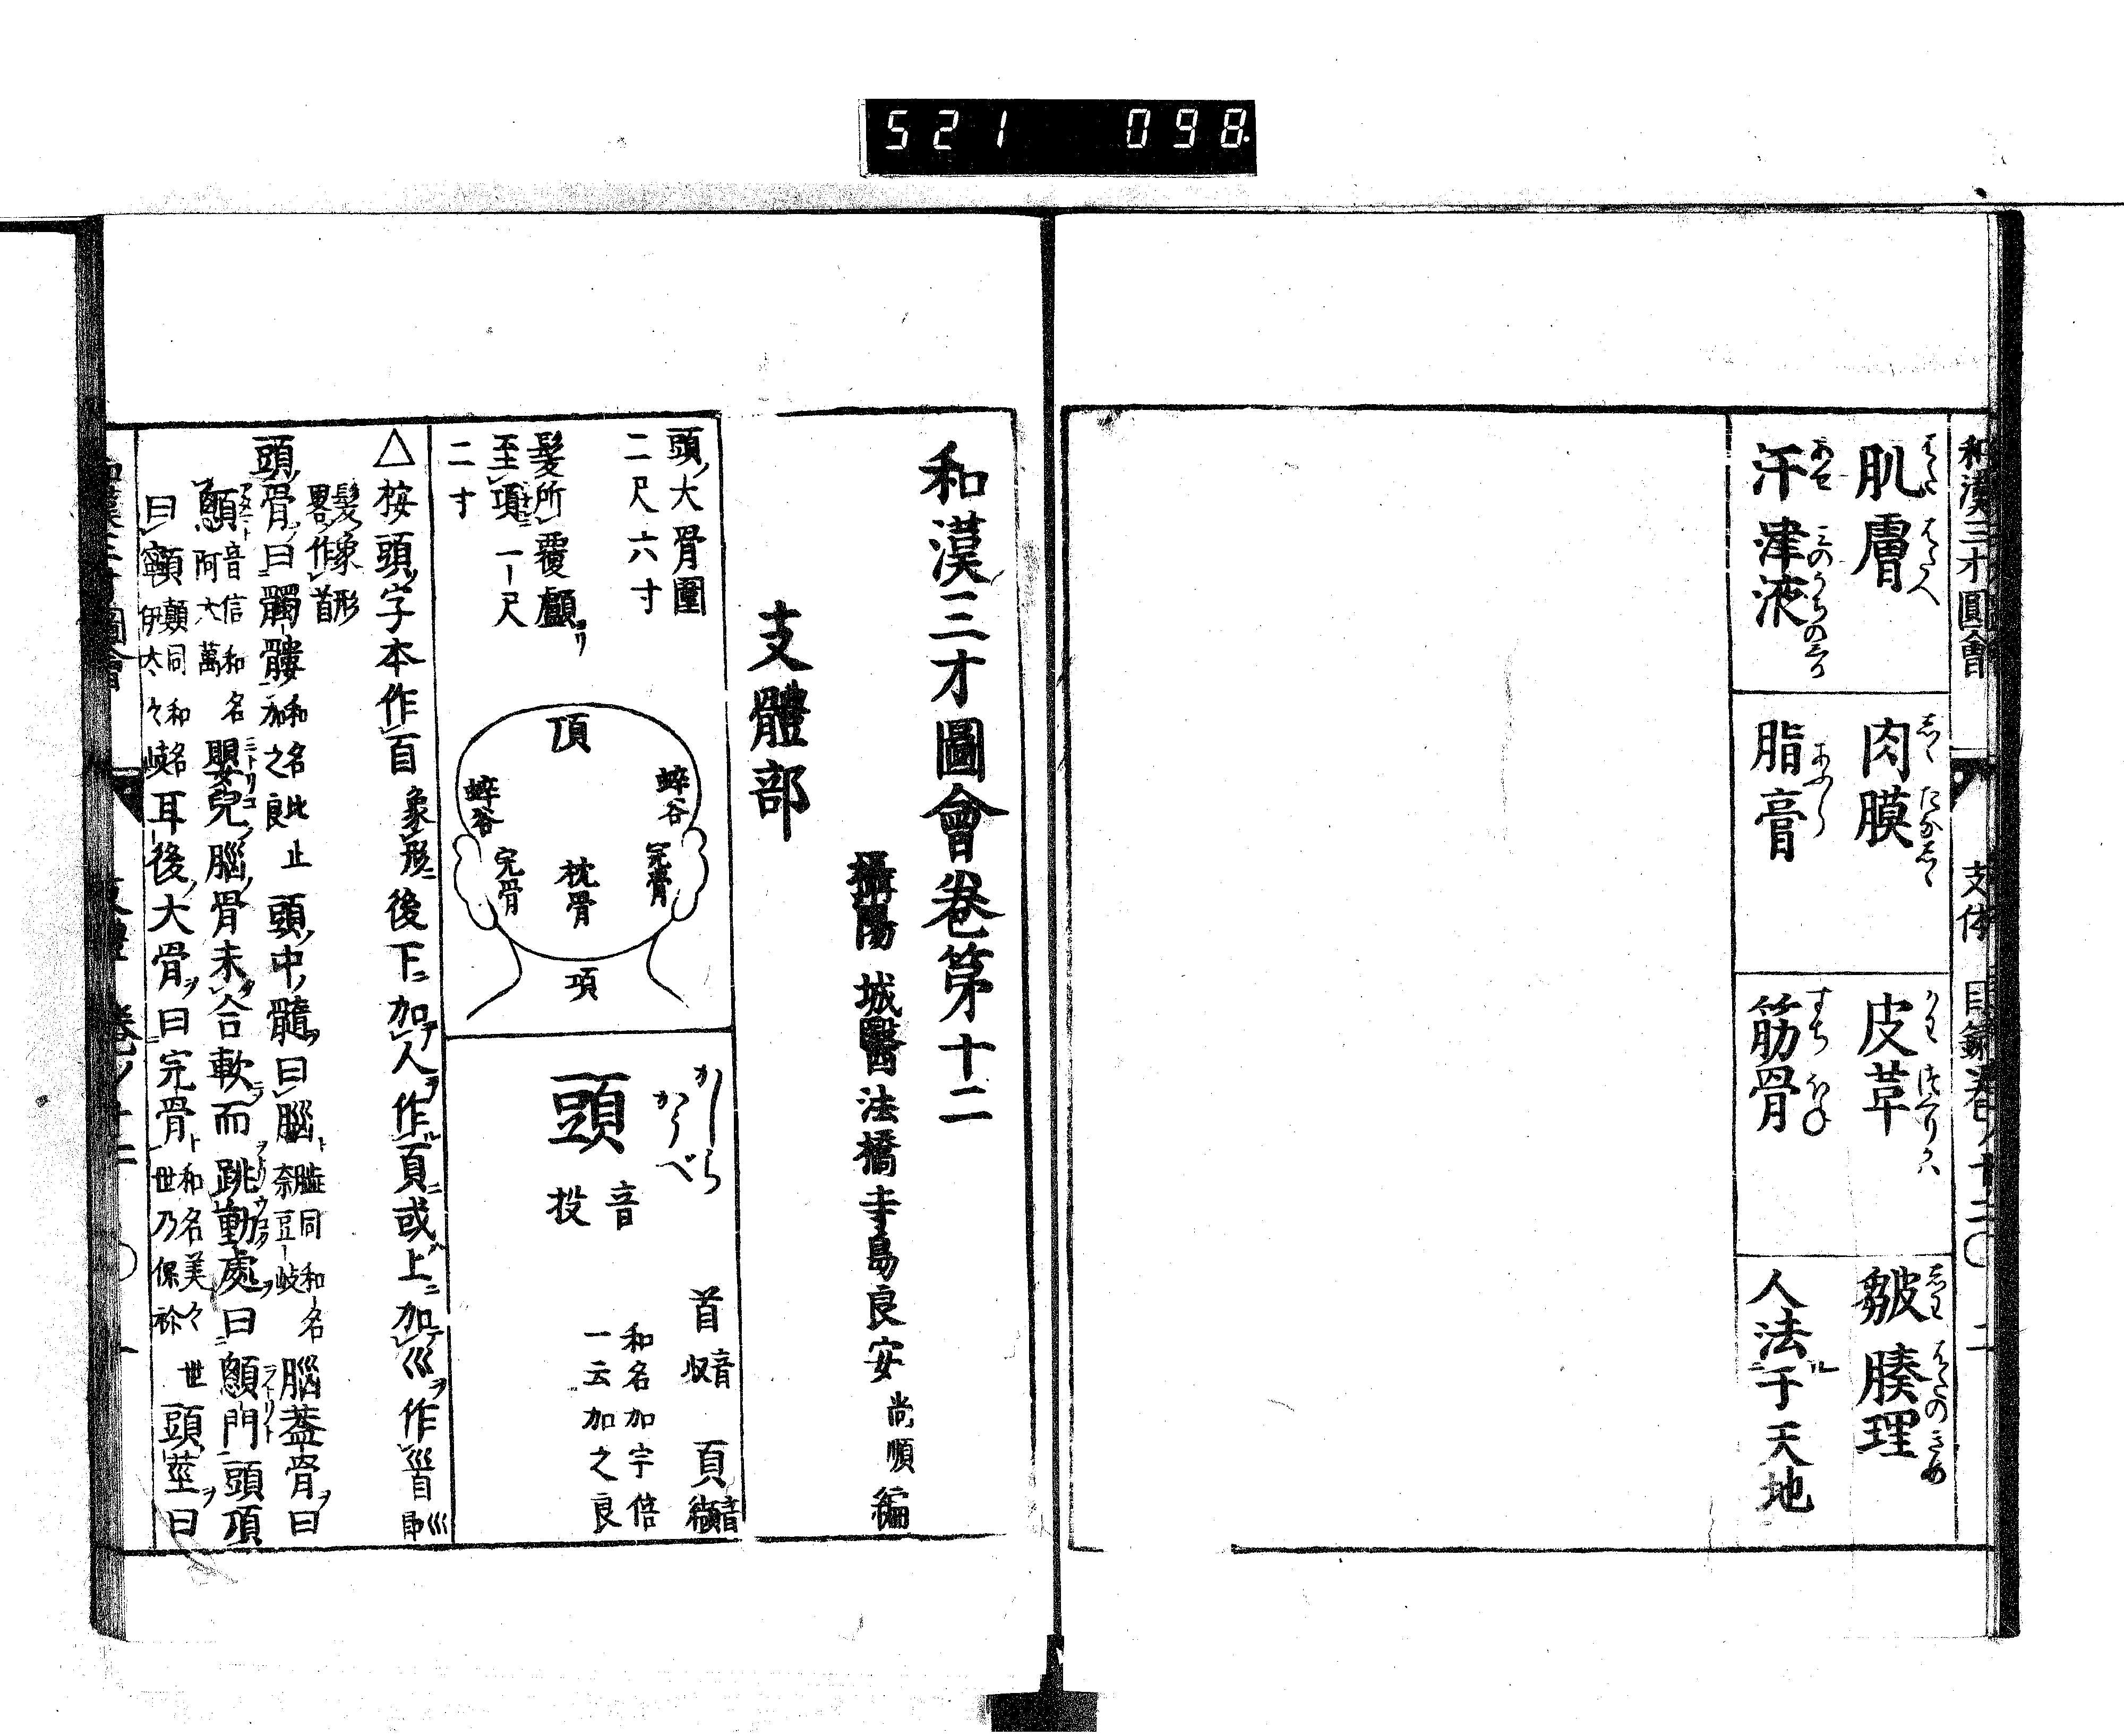 521 098
和漢三才圖會
支体 目録 卷ノ十二 ○ 二
肌膚
肉膜
皮革
皺 腠理
汗 津液
脂膏
筋骨
人法于天地
和漢三才圖會卷第十二
攝陽 城醫法橋寺島良安 尚順 編
支體部
頭ノ大骨圍
二尺六寸
髮所覆顱ヨリ
至項一尺
二寸
頂
蟀谷
蟀谷
完骨
完骨
枕骨
項
かしら
かうべ
頭
音投
首
頁
和名加宇倍
一云加之良
△按頭字本作𦣻象形後下ニ加人ヲ作頁ニ或上ニ加巛ヲ作𩠐巛即
髮象形
畧作首
頭ノ骨ヲ曰髑髏 和名加之良 頭ノ中ノ髓ヲ曰腦 同和名奈豆岐 腦葢骨ヲ曰
顖 音信和名阿太萬 嬰兒ノ腦骨未合軟而跳動處ヲ曰顖門 頭頂
曰顛 同和名伊太々岐 耳後ノ大骨ヲ曰完骨 和名美々世乃保祢 頭莖ヲ曰